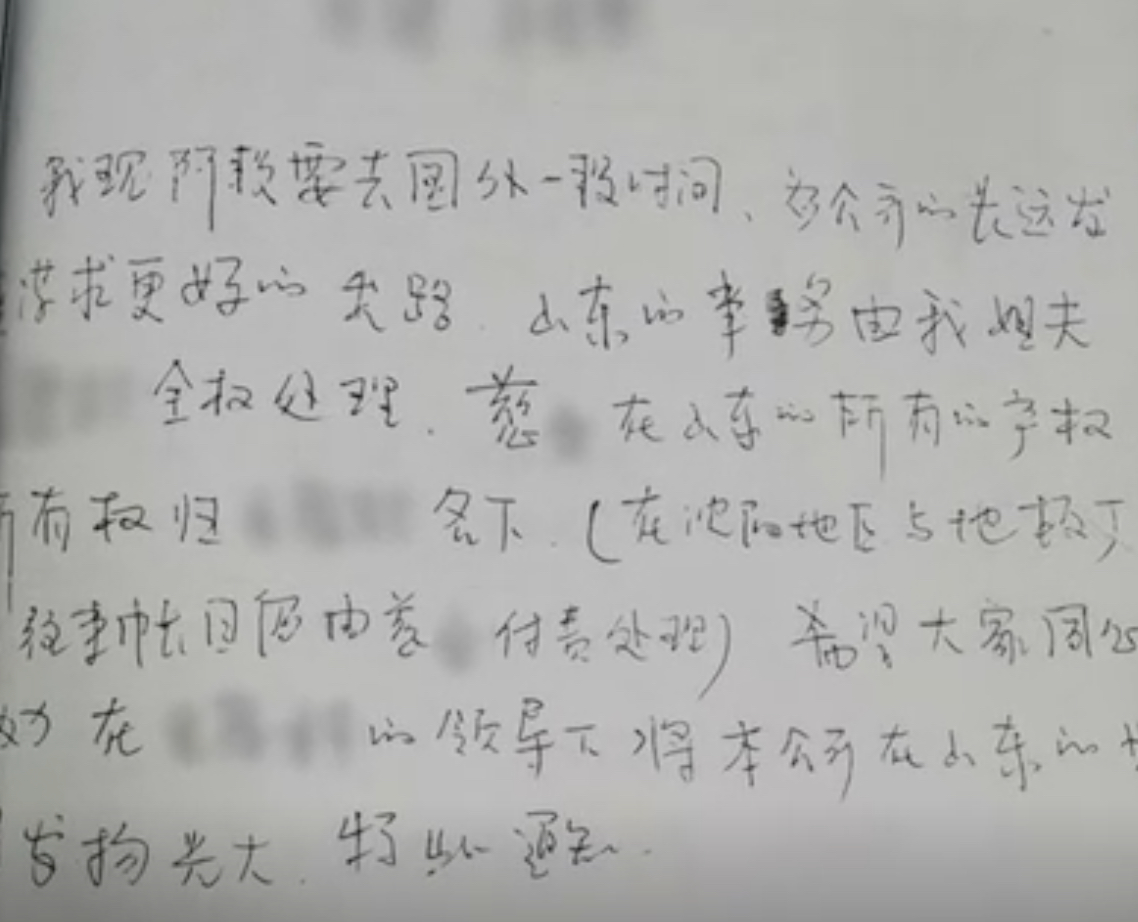 我现阶段要去国外一段时间、为公司的长远发
谋求更好的出路.山东的事务由我姐夫
全权处理.慈 在山东的所有的产权
所有权归 名下.(在沈阳地区与地板厂
往来帐目仍由慈 付责处理)希望大家同心
在 的领导下将本公司在山东的
发扬光大.特此通知.